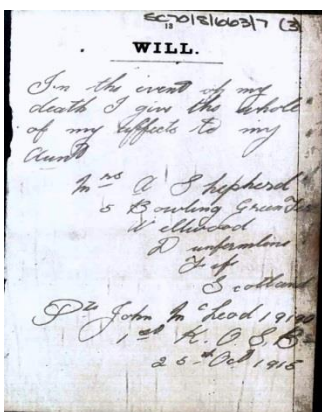 SC70/8/663/7 (3)
13
WILL.
In the event of my
death I give the whole
of my effects to my
Aunt
Mrs A Shepherd
5 Bowling Green Ter
Wellwood
Dunfermline
Fife
Scotland
Pte John McLeod 19190
1st K. O. S. B
25th Oct 1915